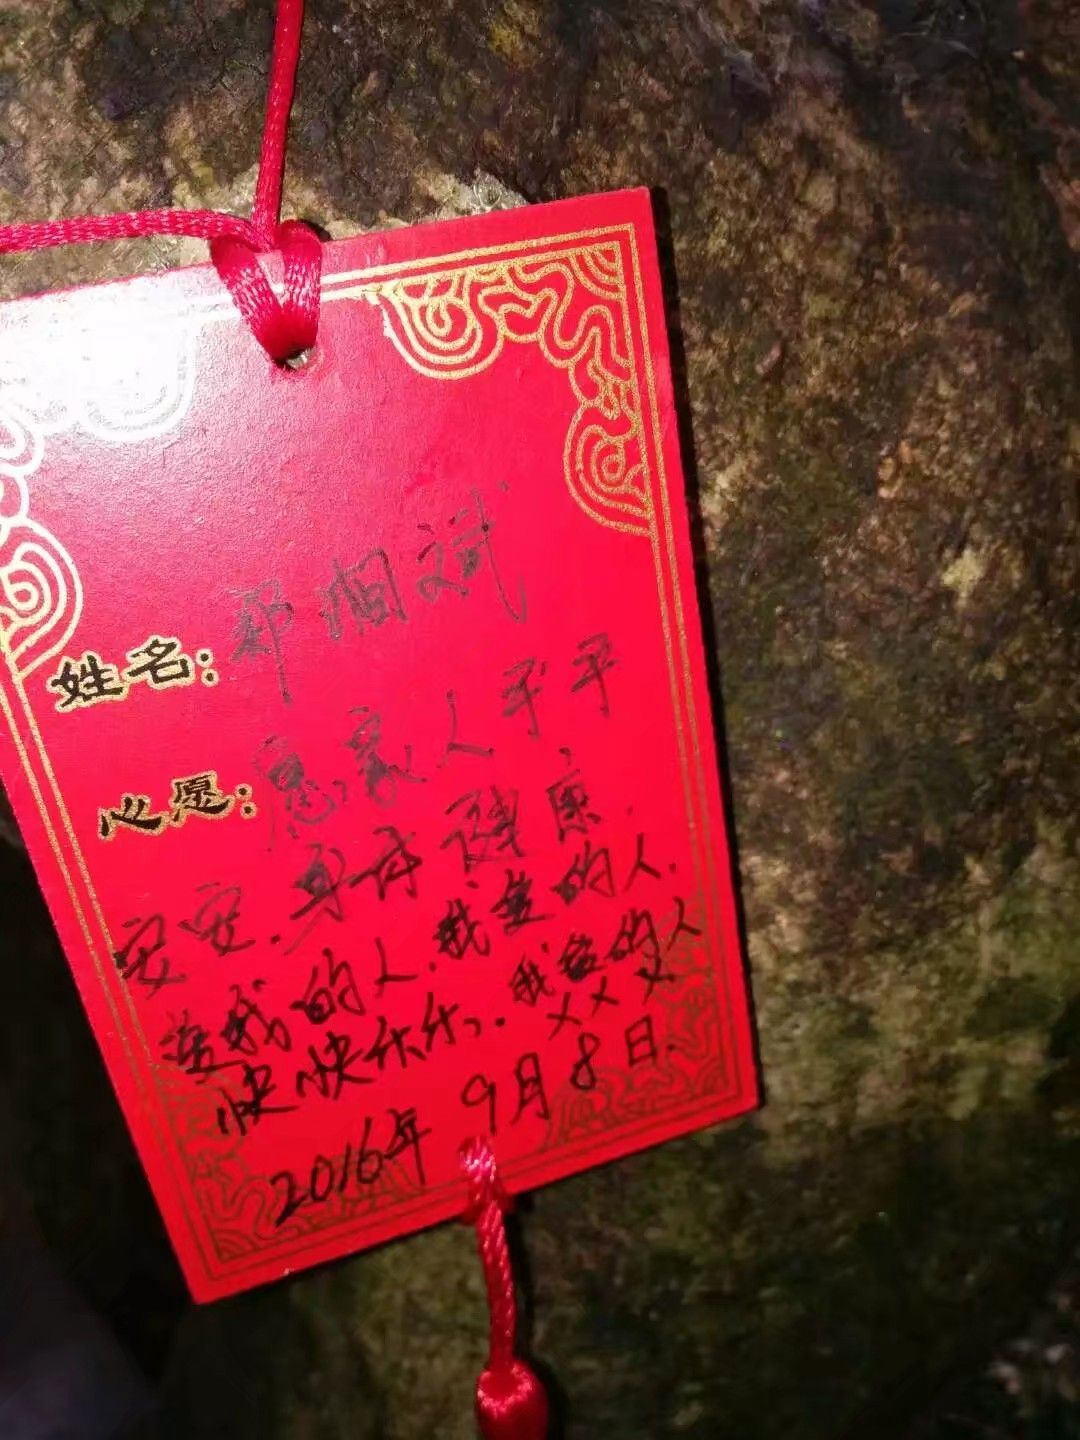 姓名: 郑烟斌
心愿: 愿家人平平
安安.身体健康.
爱我的人.我爱的人.
快快乐乐.我爱的人
×××
2016年9月8日.